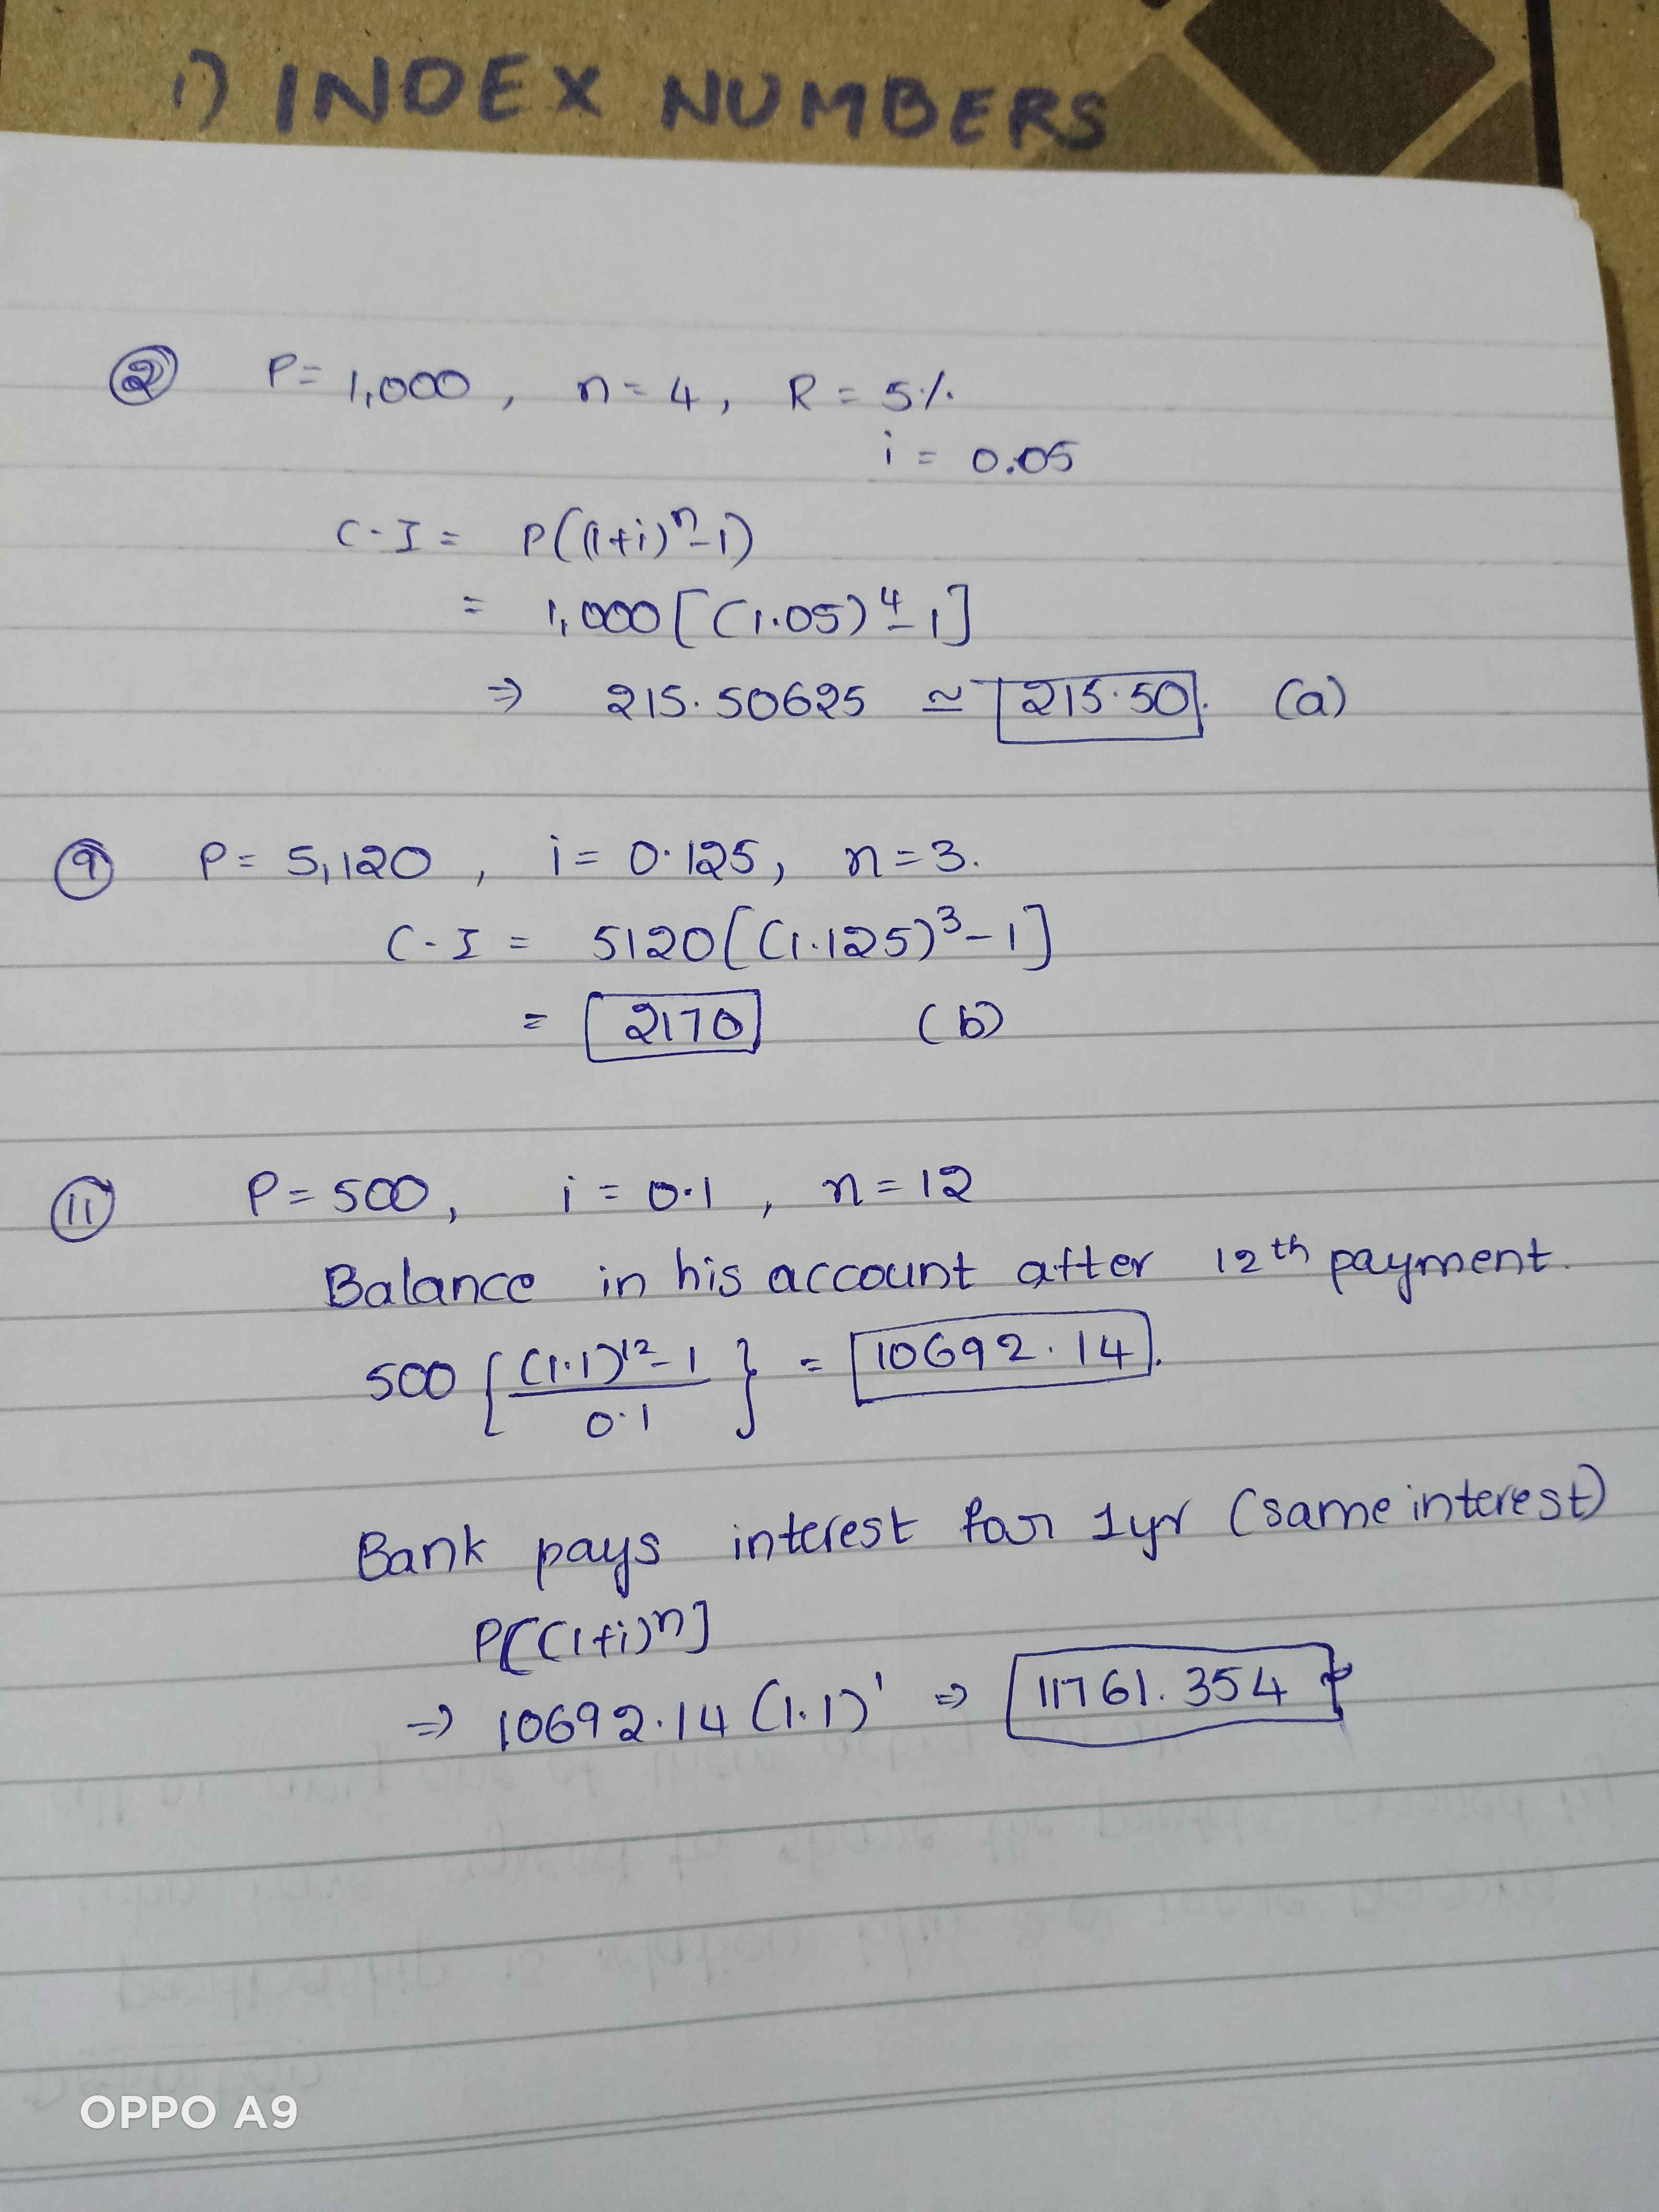 1) INDEX NUMBERS
2 P = 1,000, n = 4, R = 5%.
i = 0.05
C.I = P((1+i)^n - 1)
= 1,000 [(1.05)^4 - 1]
⇒ 215.50625 ≃ 215.50. (a)
9 P = 5,120, i = 0.125, n = 3.
C.I = 5120 [(1.125)^3 - 1]
= 2170 (b)
11 P = 500, i = 0.1, n = 12
Balance in his account after 12th payment.
500 { (1.1)^12 - 1 / 0.1 } = 10692.14.
Bank pays interest for 1yr (same interest)
P[(1+i)^n]
⇒ 10692.14 (1.1)^1 ⇒ 11761.354
OPPO A9